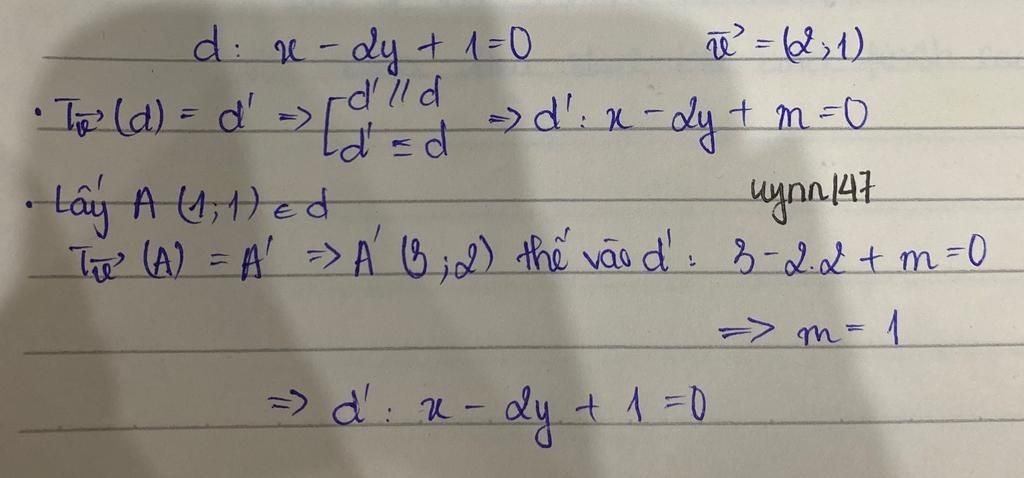 d: x - 2y + 1 = 0 u⃗ = (2;1)
• Tu⃗ (d) = d' => [ d' // d
d' ≡ d => d': x - 2y + m = 0
• Lấy A (1;1) ∈ d
uynn147
Tu⃗ (A) = A' => A' (3;2) thế vào d': 3 - 2.2 + m = 0
=> m = 1
=> d': x - 2y + 1 = 0